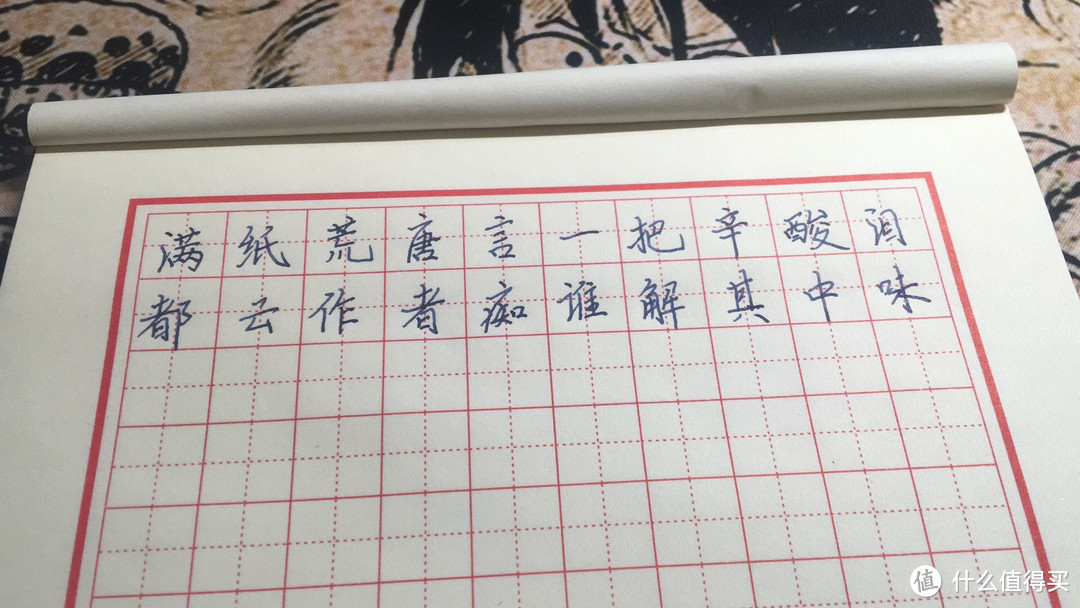 满纸荒唐言一把辛酸泪
都云作者痴谁解其中味
值 什么值得买